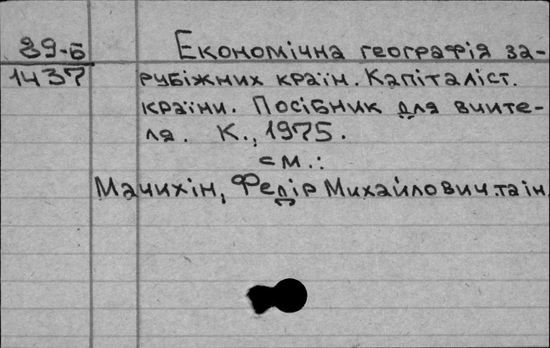 89-Б Економічна географія за-
1437 рубіжних країн. Капіталіст.
країни. Посібник для вчите-
ля. К., 1975.
см.:
Мачихін, Федір Михайлович та ін.